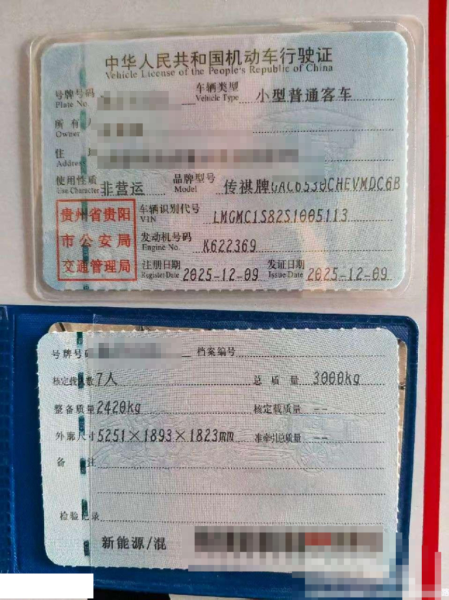 中华人民共和国机动车行驶证
Vehicle License of the People's Republic of China
号牌号码
Plate No.
车辆类型 小型普通客车
Vehicle Type
所有人
Owner
住
Address
使用性质 非营运
Use Character
品牌型号 传祺牌GAC6530CHEVMDC6B
Model
贵州省贵阳
市公安局
交通管理局
车辆识别代号 LMGMC1S82S1005113
VIN
发动机号码 K622369
Engine No.
注册日期 2025-12-09
Register Date
发证日期 2025-12-09
Issue Date
号牌号码 档案编号
核定载人数 7人 总质量 3000kg
整备质量 2420kg 核定载质量 --
外廓尺寸 5251×1893×1823mm 准牵引总质量 --
备注
检验记录
新能源/混